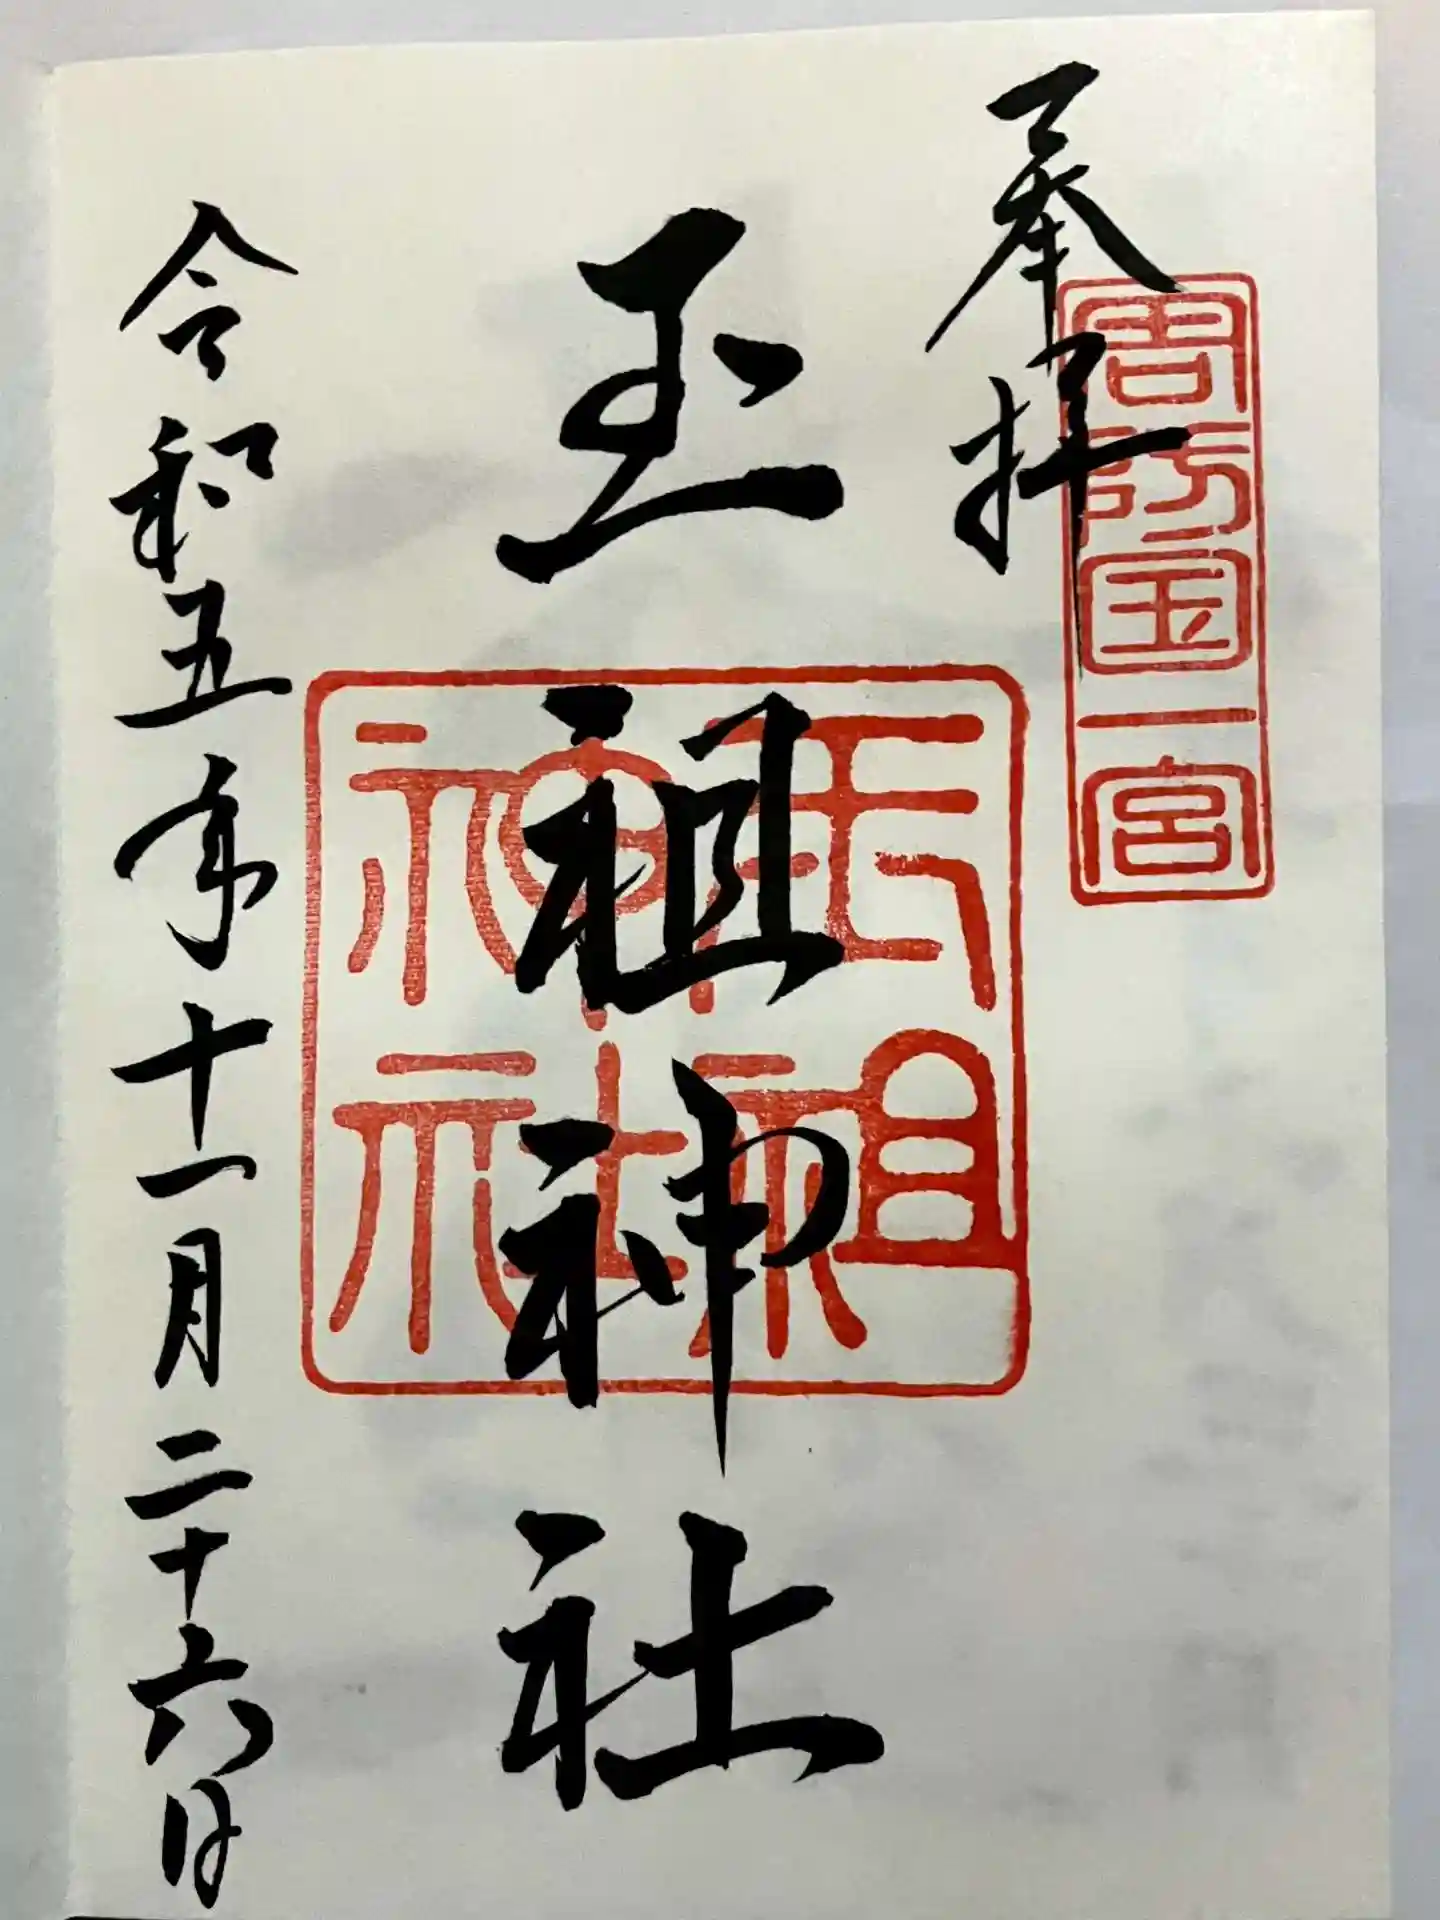 奉拝
周防国一宮
玉祖神社
玉祖
神社
令和五年十一月二十六日